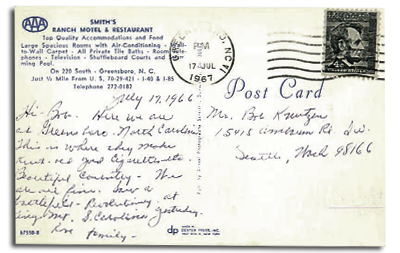 AAA
SMITH'S
RANCH MOTEL & RESTAURANT
Top Quality Accommodations and Food
Large Spacious Rooms with Air-Conditioning - Wall-
to-Wall Carpet - All Private Tile Baths - Room
phones - Television - Shuffleboard Courts and
ming Pool.
On 220 South - Greensboro, N. C.
Just ½ Mile From U. S. 70-29-421 - I-40 & I-85
Telephone 272-0182
PM
17 JUL
1967
4¢
Post Card
July 17, 1966
Hi-Bob. Here we are
at Greensboro - North Carolina
This is where they make
good Cigarettes
Beautiful Country - We
are all fine. Saw a
battlefield - Revolutionary, at
Kings Mt. S. Carolina yesterday.
Love Family -
Mr. Bob
15415 S.W.
Seattle, Wash 98166
67550-B
dp
DEXTER PRESS, INC.
WEST NYACK, NEW YORK